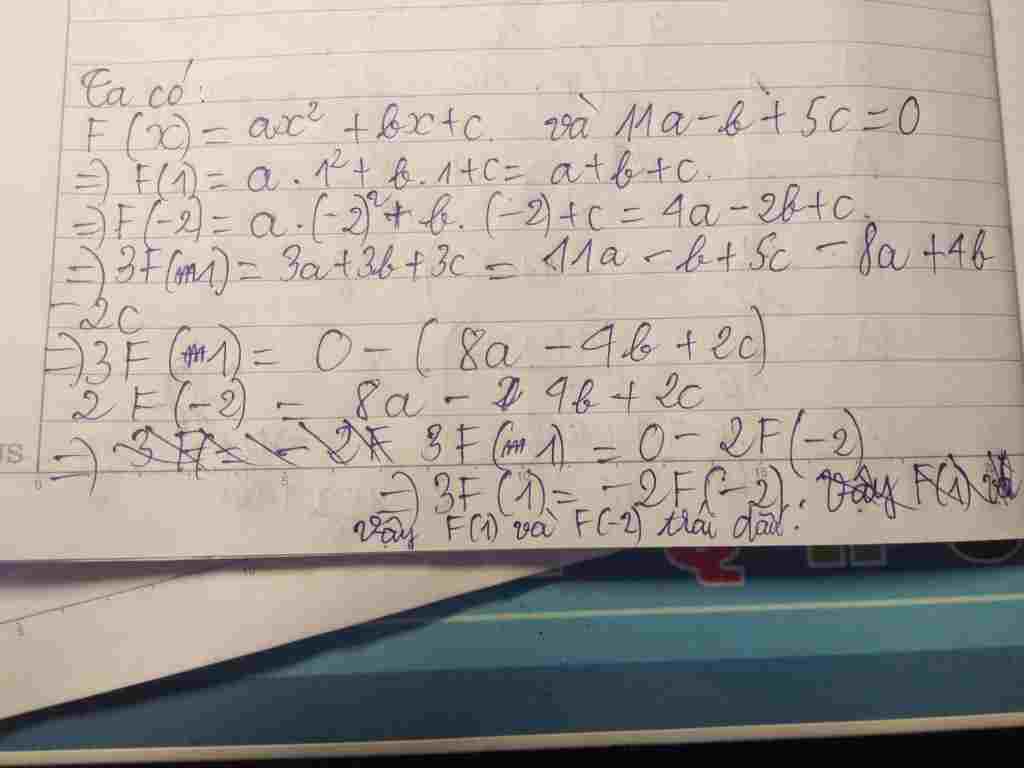 Ta có:
F(x) = ax² + bx + c. và 11a - b + 5c = 0
=) F(1) = a . 1² + b . 1 + c = a + b + c.
=) F(-2) = a . (-2)² + b . (-2) + c = 4a - 2b + c.
=) 3F(1) = 3a + 3b + 3c = 11a - b + 5c - 8a + 4b
- 2c
=) 3F(1) = 0 - (8a - 4b + 2c)
2F(-2) = 8a - 4b + 2c
=) 3F(1) = 0 - 2F(-2)
=) 3F(1) = -2F(-2).
Vậy F(1) và F(-2) trái dấu.